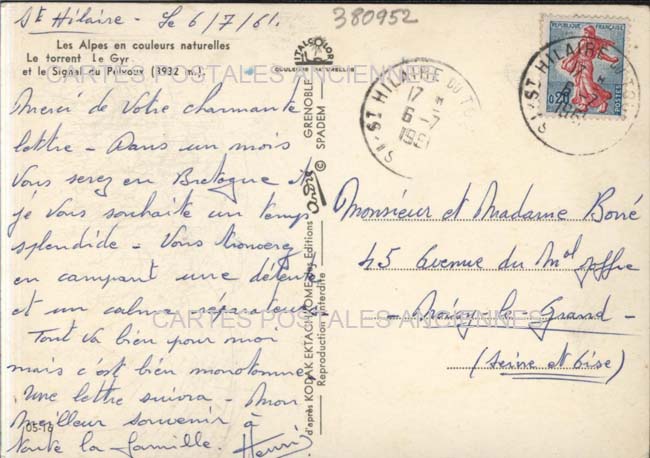 St Hilaire - Le 6/7/61.
380952
Les Alpes en couleurs naturelles
Le torrent Le Gyr
et le Signal du Pelvoux (3932 m.)
Merci de Votre charmante
lettre - Dans un mois
Vous serez en Bretagne et
je vous souhaite un temps
splendide - Vous trouverez
en campant une détente
et un calme réparateur.
Tout va bien pour moi
mais c'est bien monotone.
Une lettre suivra - Mon
meilleur souvenir à
toute la famille. Henri
05-16
ITALCOLOR
COULEURS NATURELLES
GRENOBLE
© SPADEM
André
d'après KODAK EKTACHROME des Editions
Reproduction interdite
ST HILAIRE DU T
17 H
6-7
1961
REPUBLIQUE FRANCAISE
0,20
POSTES
ST HILAIRE
1961
Monsieur et Madame Borré
45 Avenue du Mal Joffre
- le Grand -
(Seine et Oise)
CARTES POSTALES ANCIENNES
CARTES POSTALES ANCIENNES